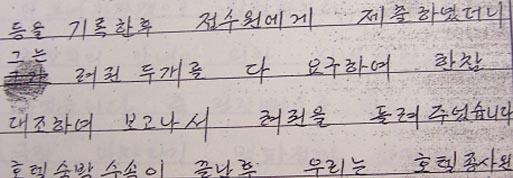 등을 기록한후 접수원에게 제출하였더니
그는
려권 두개를 다 요구하여 한참
대조하여 보고나서 려권을 돌려주었습니다
호텔숙박수속이 끝난후 우리는 호텔종사원